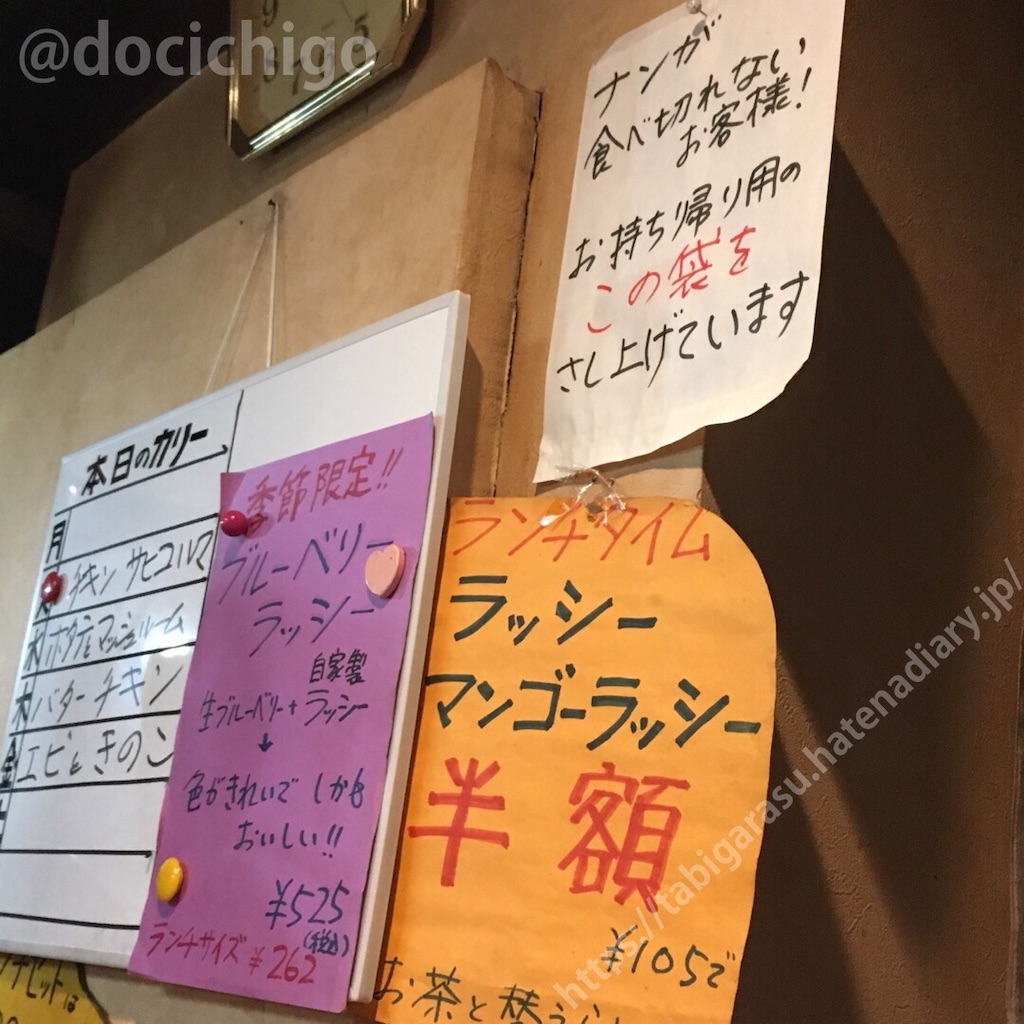 @docichigo
9
8
7
5
ナンが
食べ切れない
お客様!
お持ち帰り用の
この袋を
さし上げています
本日のカリー
月
チキン サヒコルマ
水 ホタテとマッシュルーム
木 バターチキン
金 エビときのこ
季節限定!!
ブルーベリー
ラッシー
自家製
生ブルーベリー+ラッシー
↓
色がきれいで しかも
おいしい!!
¥525
(税込)
ランチサイズ ¥262
ランチタイム
ラッシー
マンゴーラッシー
半額
¥105で
お茶と替え
https://tabigarasu.hatenadiary.jp/